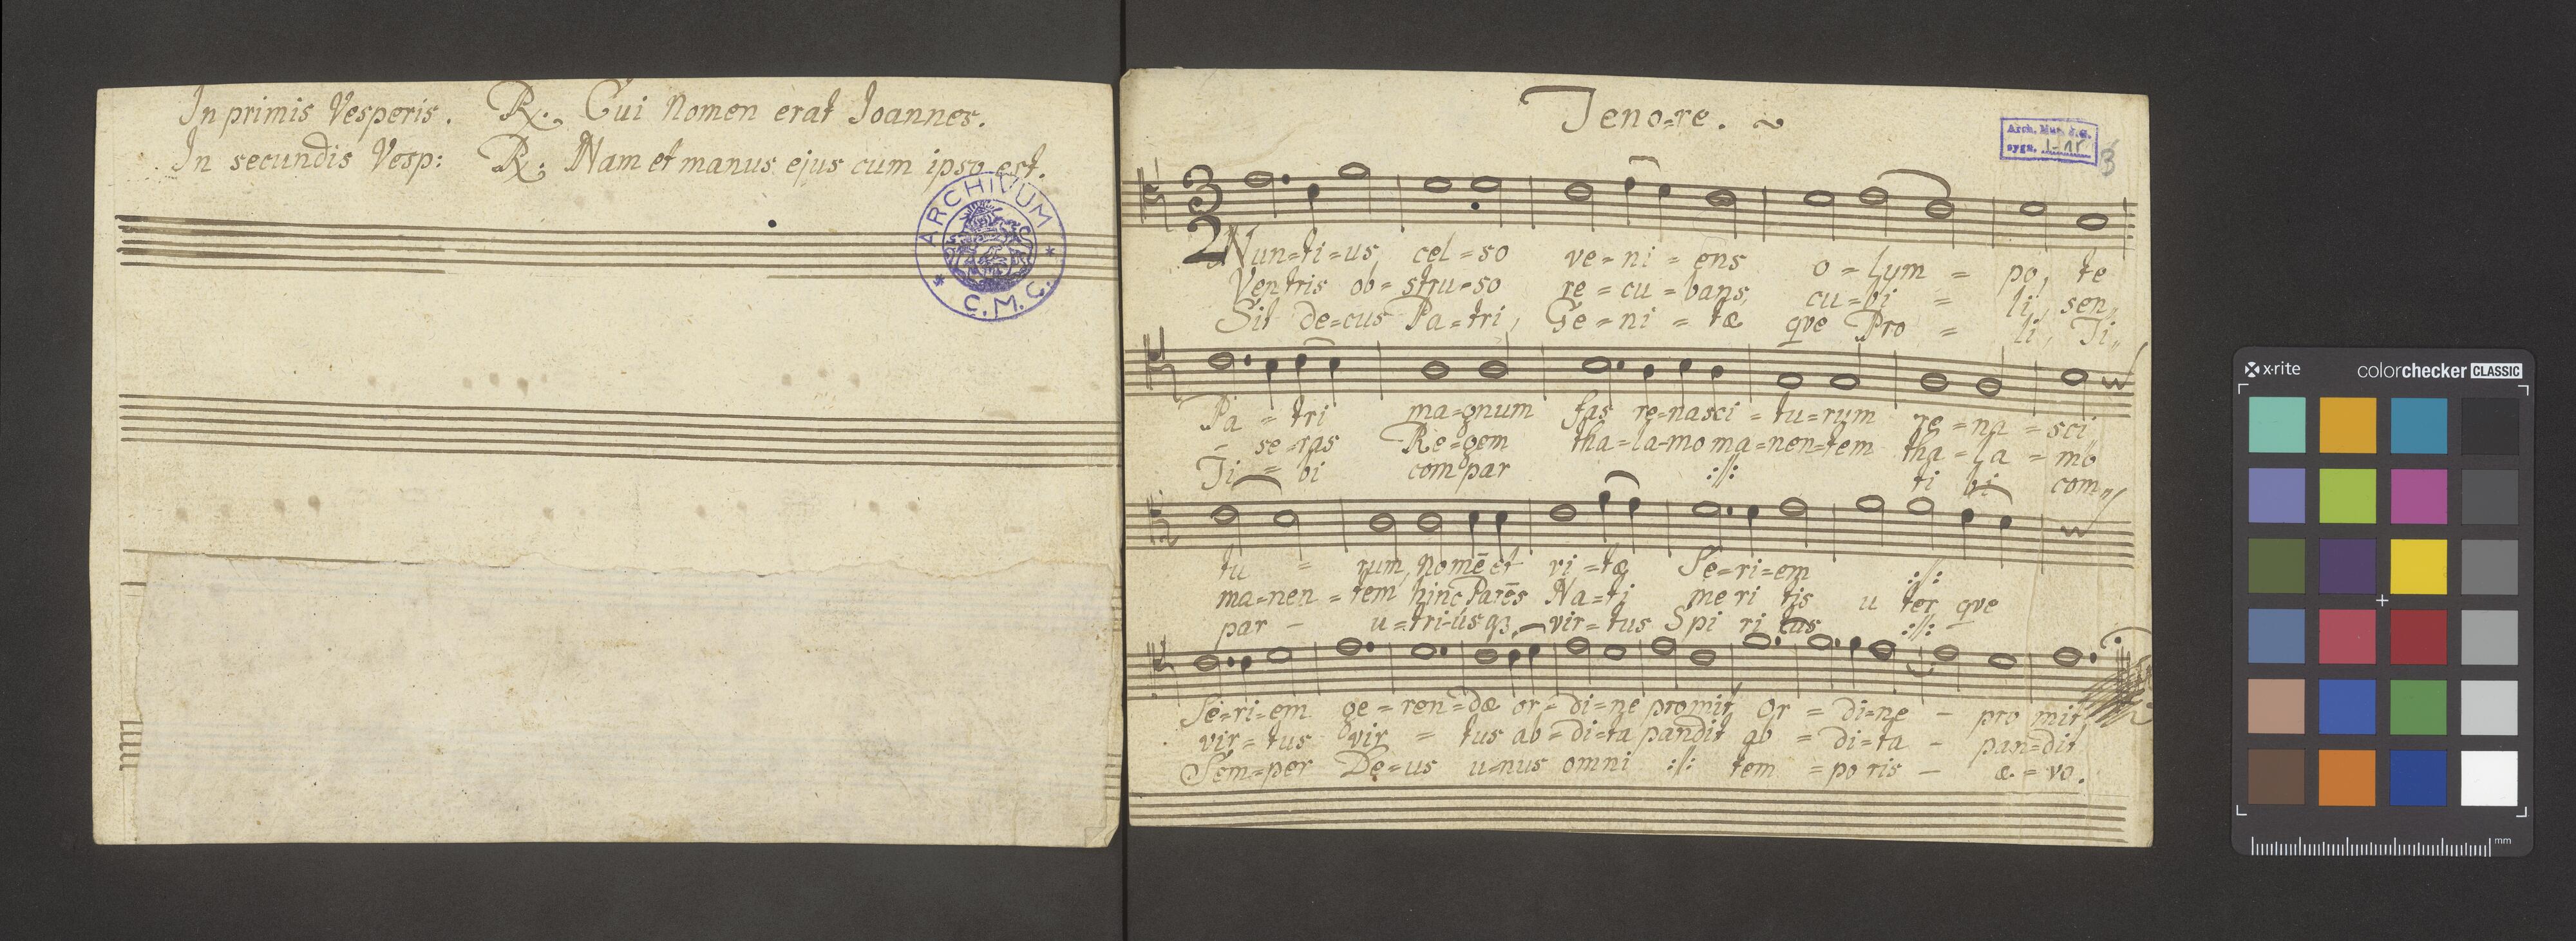 In primis Vesperis. R. Cui Nomen erat Ioannes.
In secundis Vesp: R. Nam et manus ejus cum ipso est.
ARCHIVUM
C.M.C.
Teno=re.
Arch. Mus.
sygn. I-15
3
3
2
Nun=ti=us, cel=so ve=ni=ens o=lym=po, te
Ventris ob=stru=so re=cu=bans, cu=bi=li, sen„
Sit de=cus Pa=tri, Ge=ni=tæ que Pro=li, Ti„
Pa=tri ma=gnum fas re=nasci=tu=rum re=na=sci„
=se=ras Re=gem tha=la=mo ma=nen=tem tha=la=mo
Ti=bi compar :/: ti bi com„
tu=rum, nomē et vi=tæ Se=ri=em :/:
ma=nen=tem hinc Parēs Na=ti me ri tis u ter que
par – u=tri=úsqз, vir=tus Spi ri tus :/:
Se=ri=em ge=ren=dæ or=di=ne promit, or=di=ne – pro mit,
vir=tus vir=tus ab=di=ta pandit ab=di=ta – pan=dit
Sem=per De=us u=nus omni :/: tem=po ris – æ=vo.
x-rite
colorchecker CLASSIC
mm